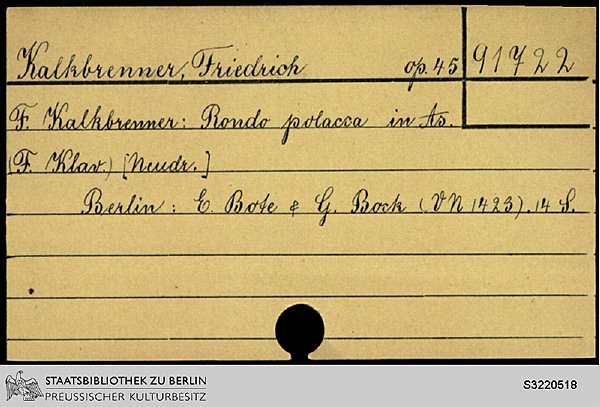 Kalkbrenner, Friedrich op. 45 91722
F. Kalkbrenner: Rondo polacca in As.
(F. Klav.) [Neudr.]
Berlin: E. Bote & G. Bock (VN 1423). 14 S.
STAATSBIBLIOTHEK ZU BERLIN
PREUSSISCHER KULTURBESITZ
S3220518